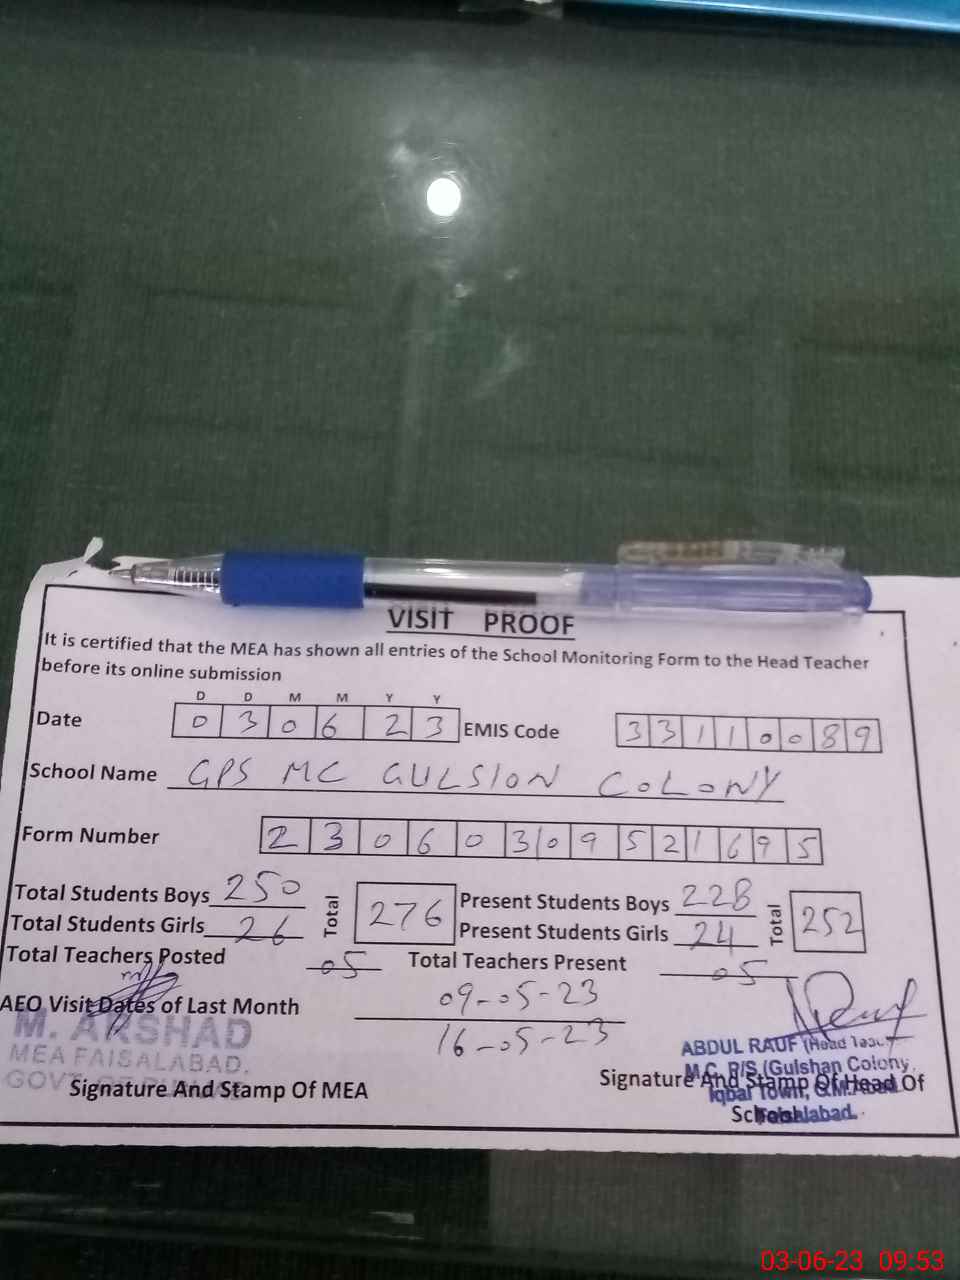 VISIT PROOF
It is certified that the MEA has shown all entries of the School Monitoring Form to the Head Teacher
before its online submission
D D M M Y Y
Date 0 3 0 6 2 3 EMIS Code 3 3 1 1 0 0 8 9
School Name GPS MC GULSION COLONY
Form Number 2 3 0 6 0 3 0 9 5 2 1 6 9 5
Total Students Boys 250 Total 276 Present Students Boys 228 Total 252
Total Students Girls 26 Present Students Girls 24
Total Teachers Posted 05 Total Teachers Present 05
AEO Visit Dates of Last Month 09-05-23
16-05-23
M. ARSHAD
MEA FAISALABAD.
GOVT.
Signature And Stamp Of MEA
ABDUL RAUF (Head
M.C. P/S (Gulshan Colony,
Iqbal Town,
Faisalabad.
Signature And Stamp Of Head Of
School
03-06-23 09.53